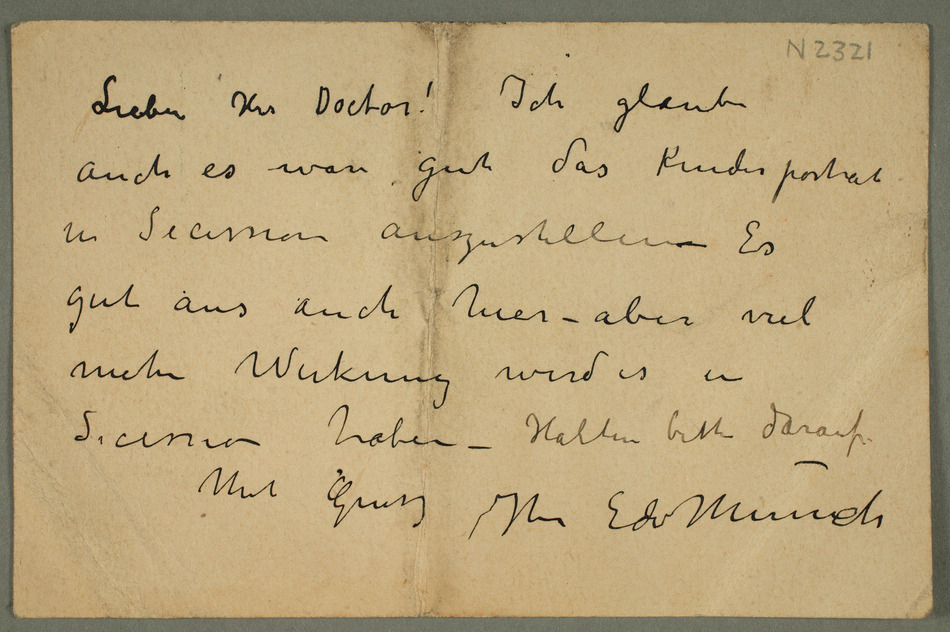 N 2321
Lieber Herr Doctor! Ich glaube
auch es war gut das Kinderportrat
in Secession auszustellen – Es
gut aus auch hier – aber viel
mehr Wirkung wird es in
Secession haben – Halten bitte darauf.
Mit Gruss Ihr Edv Munch